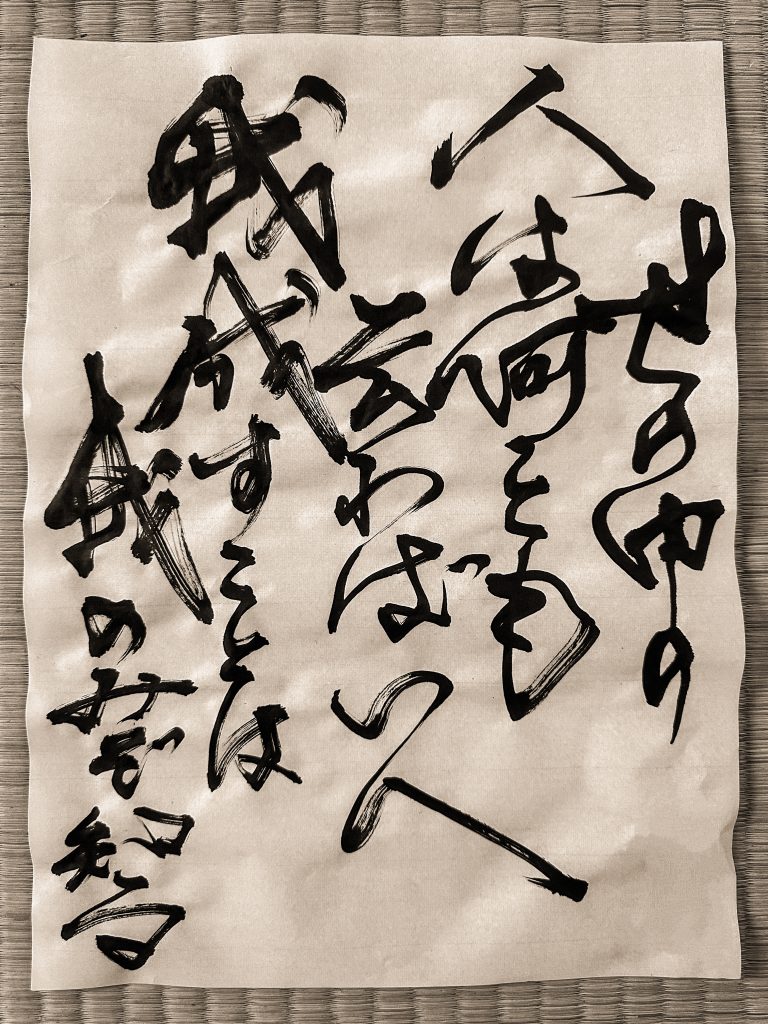 世の中の
人は何とも
云わばいへ
我成すことは
我のみぞ知る